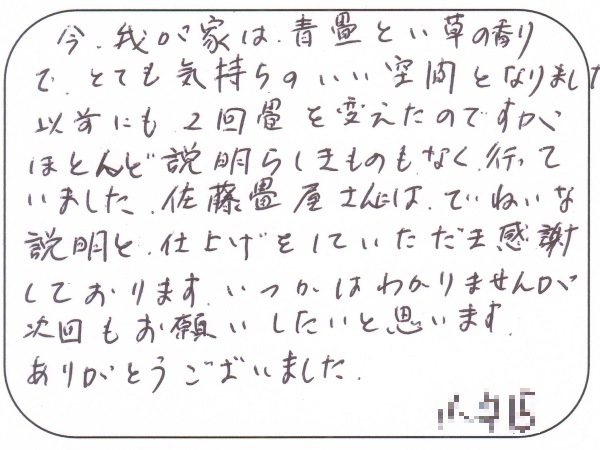 今、我が家は、青畳とい草の香り
で、とても気持ちのいい空間となりました
以前にも2回畳を変えたのですが、
ほとんど説明らしきものもなく、行って
いました。佐藤畳屋さんは、ていねいな
説明と、仕上げをしていただき感謝
しております。いつかはわかりませんが
次回もお願いしたいと思います。
ありがとうございました。